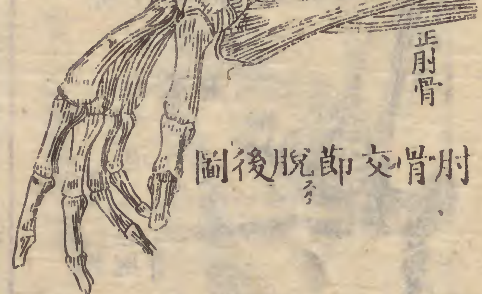 正肘骨
肘骨交節脫後圖